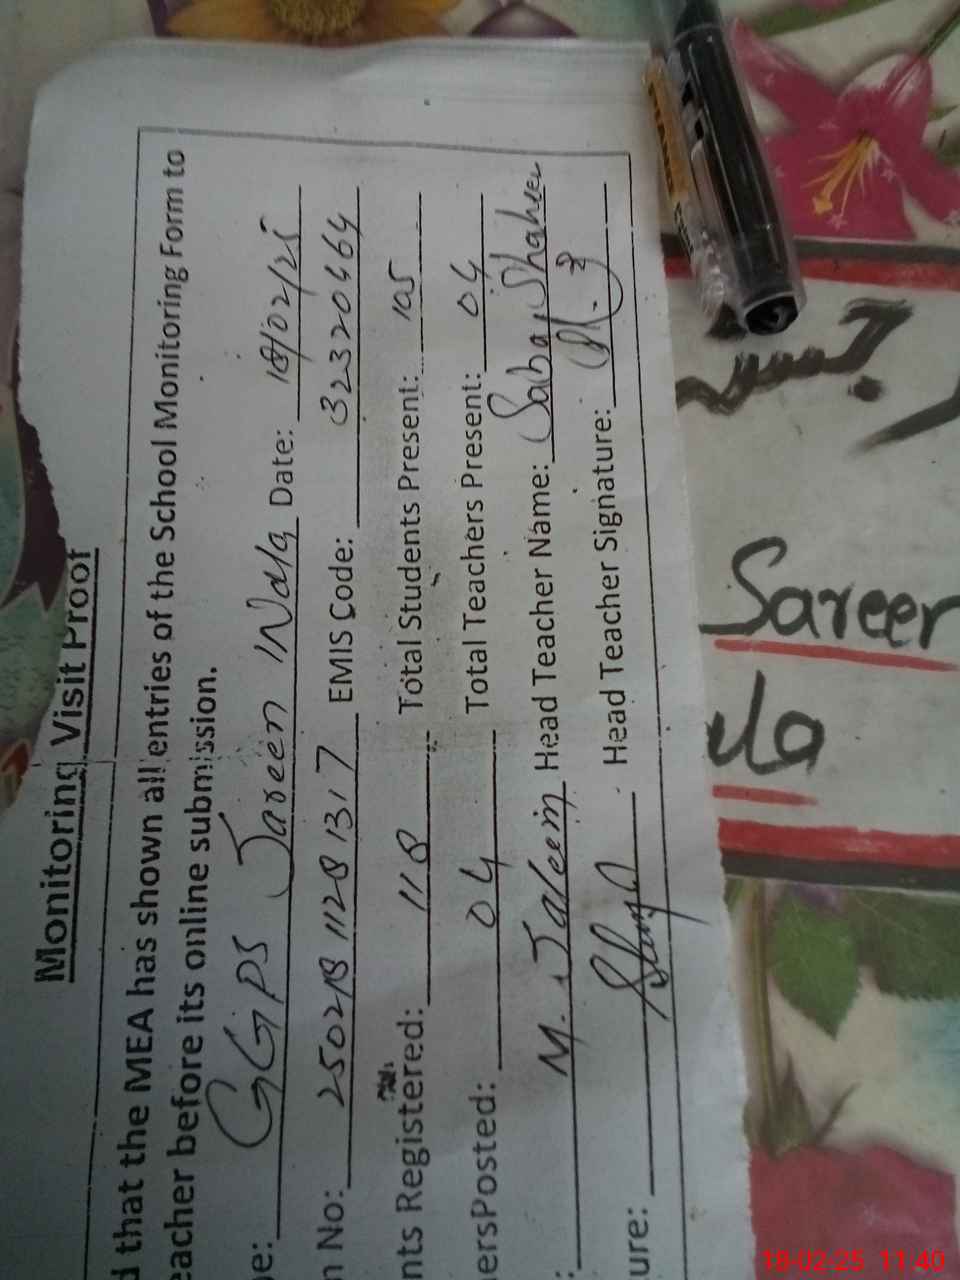 Monitoring Visit Proof
d that the MEA has shown all entries of the School Monitoring Form to
eacher before its online submission.
e: GGPS Jareen Wala Date: 18/02/25
n No: 25021811281317 EMIS Code: 32320464
nts Registered: 118 Total Students Present: 105
ersPosted: 04 Total Teachers Present: 04
: M. Jaleem Head Teacher Name: Saba Shaheen
ure: Head Teacher Signature:
Sareer
la
18-02-25 11:40